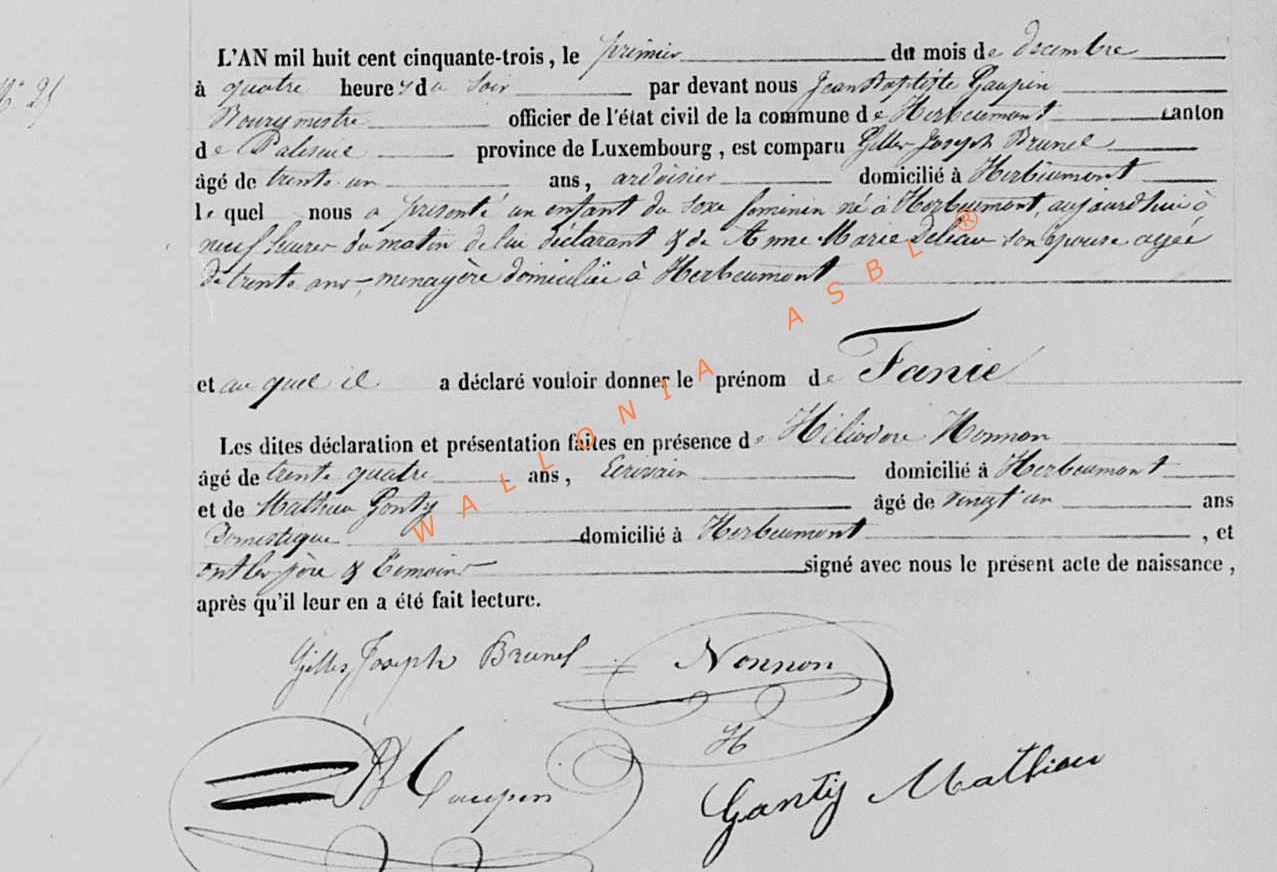 N° 25
L'AN mil huit cent cinquante-trois, le premier du mois de decembre
à quatre heures du soir par devant nous Jean Baptiste Gaupin
Bourgmestre officier de l'état civil de la commune de Herbeumont canton
de Paliseul province de Luxembourg, est comparu Gilles Joseph Brunel
âgé de trente un ans, ardoisier domicilié à Herbeumont
le quel nous a présenté un enfant du sexe feminin né à Herbeumont, aujourd'hui à
neuf heures du matin de lui déclarant & de Anne Marie son epouse agée
de trente ans, menagère domiciliée à Herbeumont
et au quel il a déclaré vouloir donner le prénom de Fanie
Les dites déclaration et présentation faites en présence de Héliodore Nonnon
âgé de trente quatre ans, Ecrivain domicilié à Herbeumont
et de Mathieu Gonty âgé de vingt un ans
Domestique domicilié à Herbeumont, et
ont les père & témoins signé avec nous le présent acte de naissance,
après qu'il leur en a été fait lecture.
Gilles Joseph Brunel Nonnon
H
JB Gaupin
Gantÿ Mathieu
WALLONIA ASBL ®